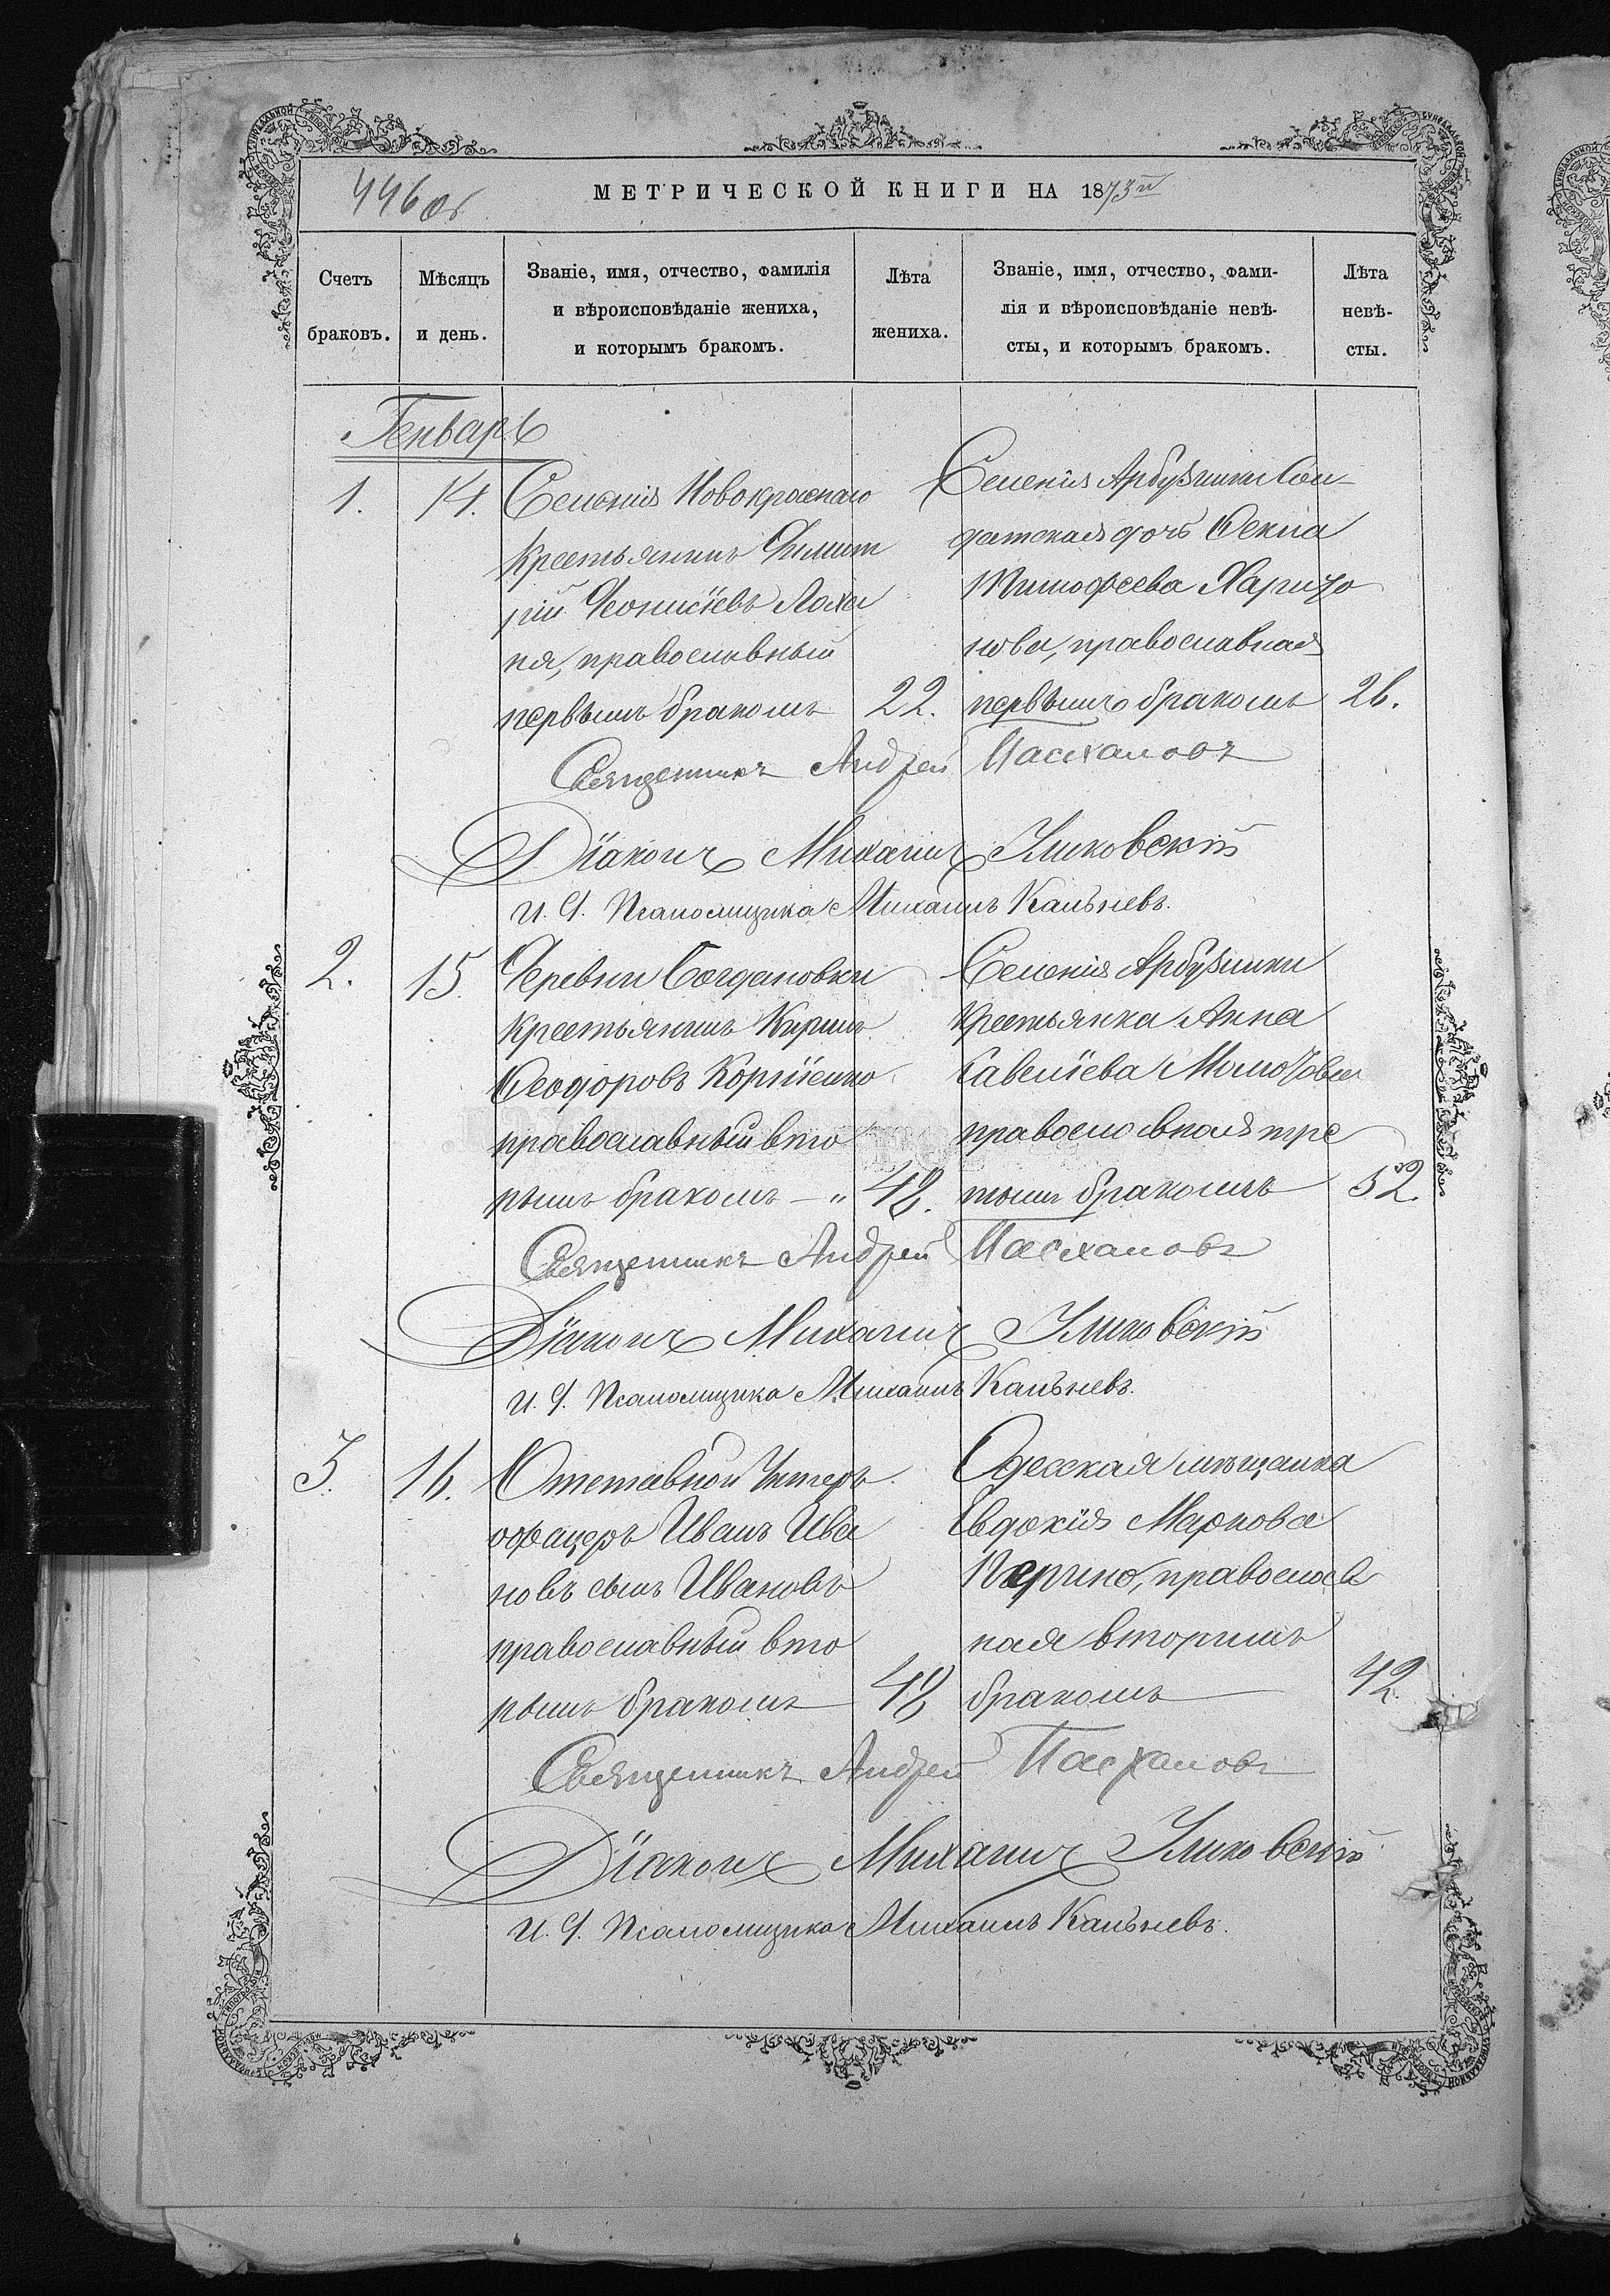 446 об
МЕТРИЧЕСКОЙ КНИГИ НА 1873й
Счетъ браковъ.
Мѣсяцъ и день.
Званіе, имя, отчество, фамилія
и вѣроисповѣданіе жениха,
и которымъ бракомъ.
Лѣта жениха.
Званіе, имя, отчество, фами-
лія и вѣроисповѣданіе невѣ-
сты, и которымъ бракомъ.
Лѣта невѣ-
сты.
Генварь
1. 14.
Селенія Новокраснаго
крестьянинъ Димит
рій Деонисіевъ Лоха
ня, православный
первымъ бракомъ 22.
Селенія Арбузинки Сол
датская дочь Фекла
Тимофеева Харито
нова, православная
первымъ бракомъ 26.
Священникъ Андрей Пасхаловъ
Діаконъ Михаилъ Улиовскій
И. д. Псаломщика Михаилъ Кальневъ.
2. 15.
Деревни Богдановки
крестьянинъ Кирилъ
Феодоровъ Корніенко
православный вто
рымъ бракомъ — " 48.
Селенія Арбузинки
крестьянка Анна
Савеліева
православная тре
тьимъ бракомъ 52.
Священникъ Андрей Пасхаловъ
Діаконъ Михаилъ
И. д. Псаломщика Михаилъ Кальневъ.
3. 16.
Отставной Унтеръ
офицеръ Иванъ Ива
новъ сынъ Ивановъ
православный вто
рымъ бракомъ 48
Одесская мѣщанка
Евдокія Маркова
православ
ная вторымъ
бракомъ 42.
Священникъ Андрей Пасхаловъ
Діаконъ Михаилъ
И. д. Псаломщика Михаилъ Кальневъ.